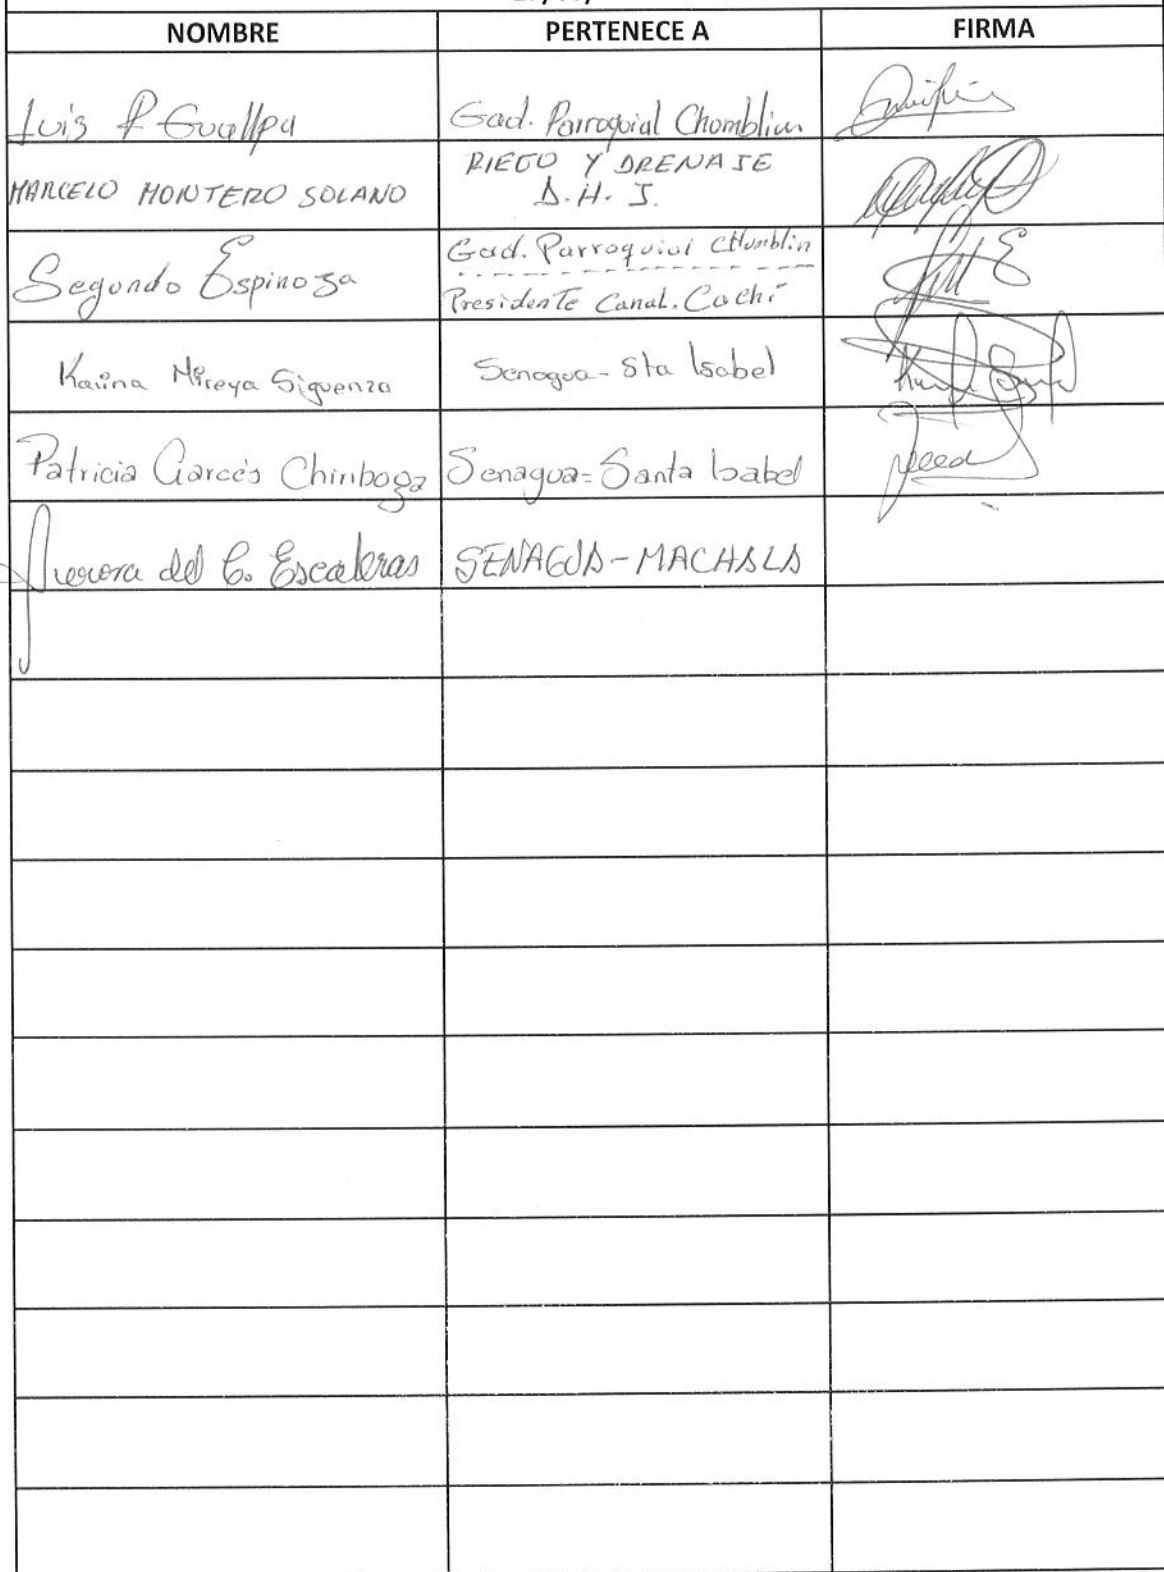 NOMBRE PERTENECE A FIRMA
Luis P Guallpa Gad. Parroquial Chomblin
MARCELO MONTERO SOLANO RIEGO Y DRENAJE
D.H.J.
Segundo Espinoza Gad. Parroquial CHumblin
Presidente Canal. Cachi
Karina Mireya Siguenza Senagua - Sta Isabel
Patricia Garcés Chiriboga Senagua - Santa Isabel
Aurora del C. Escaleras SENAGUA - MACHALA